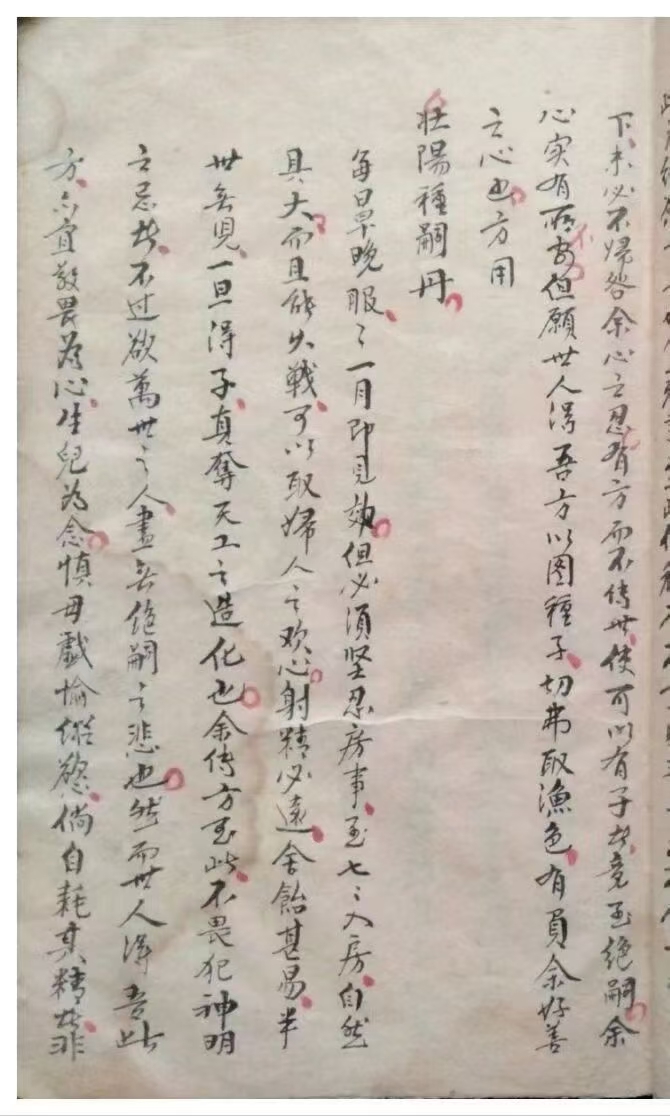 下、未必不歸咎余心之忍、有方而不传世、使可以有子者、竟至绝嗣、余
心实有所不安、但願世人得吾方以圖種子、切弗取漁色、有負余好善
之心也、方用
壯陽種嗣丹
每日早晚服、〻一月即見效、但必須坚忍房事、至七〻入房、自然
具大、而且能久戰、可以取婦人之欢心、射精必遠、含飴甚易、半
世無児、一旦得子、真奪天工之造化也、余传方至此、不畏犯神明
之忌者、不过欲萬世之人、盡無绝嗣之悲也、然而世人得吾此
方、亦宜敬畏為心、生兒為念、慎毋戲愉縱慾、倘自耗真精者、非